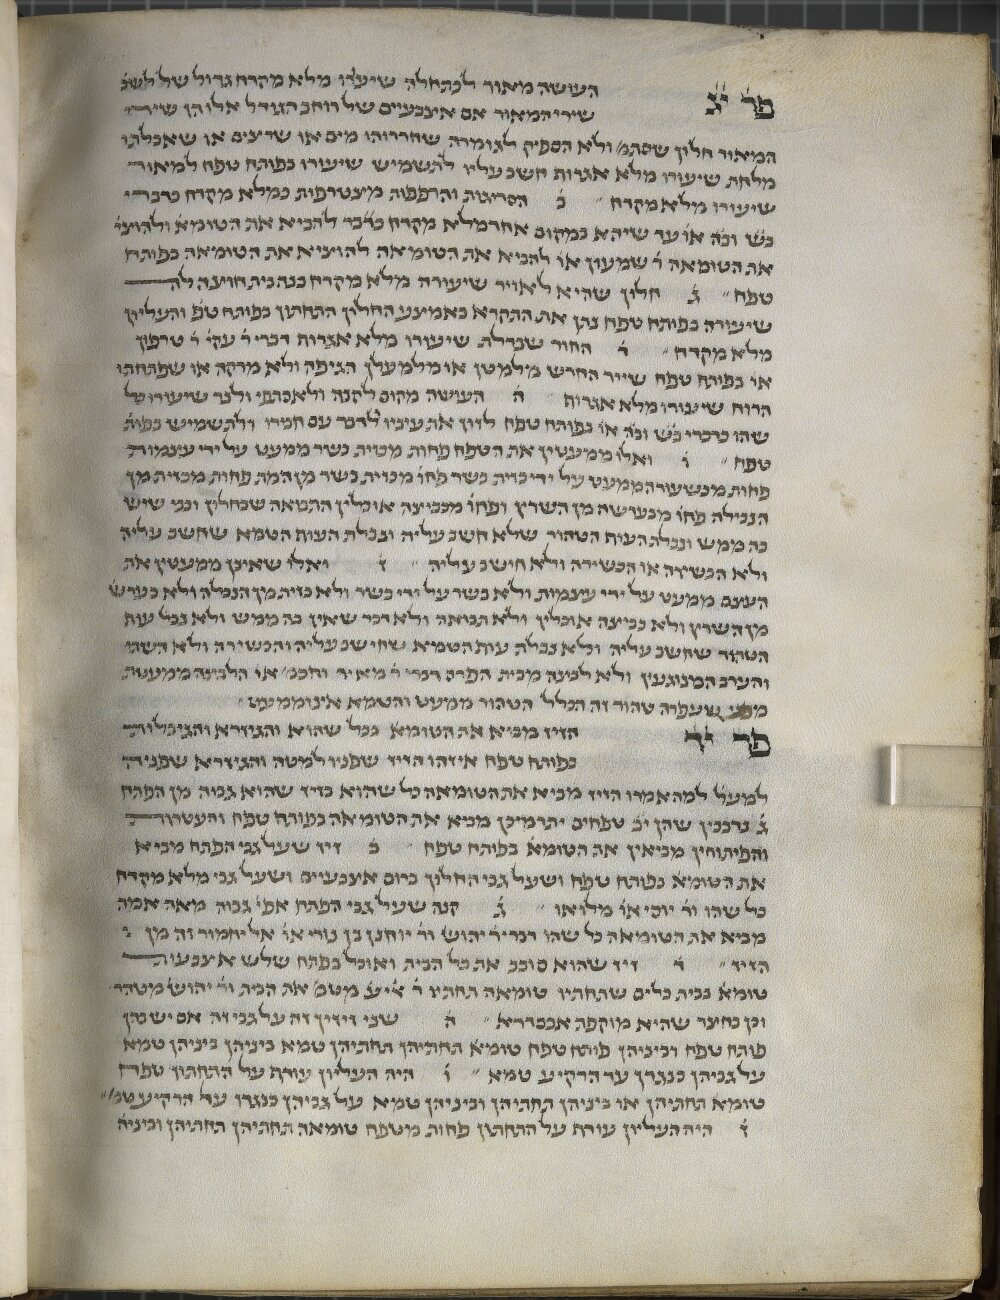 פר׳ יג העושה מאור לכתחלה שיעורו מלא מקדח גדול של לשכ׳
שירי המאור אם אצבעיים של רוחב הגודל אלו הן שירי
המאור חלון שסתמ׳ ולא הספיק לגומרה שחררוהו מים או שרצים או שאכלתו
מלחת שיעורו מלא אגרוף חשב עליו לתשמיש שיעורו בפותח טפח למאור
שיעורו מלא מקדח ב׳ הסריגות והרפפות מצטרפות כמלא מקדח כדברי
בש ובה או׳ עד שיהא במקום אחד מלא מקדח כדבר להביא את הטומא׳ ולהוצי׳
את הטומאה ר׳ שמעון או׳ להביא את הטומאה להוציא את הטומאה בפותח
טפח ג׳ חלון שהיא לאויר שיעורה מלא מקדח בנה בית חוצה לה
שיעורה בפותח טפח נתן את התקרא באמצע החלון התחתון בפותח טפ׳ והעליון
מלא מקדח ד׳ החור שבדלת שיעורו מלא אגרוף דברי ר׳ עקי׳ ר׳ טרפון
או׳ בפותח טפח שייר החרש מלמטן או מלמעלן הגיפה ולא מרקה או שפתחתו
הרוח שיעורו מלא אגרוף ה׳ העושה מקום לקנה ולאכרתי׳ ולנר שיעורו כל
שהו כדברי בש ובה או׳ בפותח טפח לזון את עיניו לדבר עם חבירו ולתשמיש בפות׳
טפח ו׳ ואלו ממעטין את הטפח פחות מכזית בשר ממעט על ידי עצמות
פחות מכשעורה ממעט על ידי כזית בשר פחו׳ מכזית בשר מן המת פחות מכזית מן
הנבילה פחו׳ מכעדשה מן השרץ ופחו׳ מכביצה אוכלין התבואה שבחלון וככי שיש
בה ממש ונבלת העוף הטהור שלא חשב עליה ונבלת העוף הטמא שחשב עליה
ולא הכשירה או הכשירה ולא חישב עליה ז׳ ואלו שאינן ממעטין את
העצם ממעט על ידי עצמות ולא בשר על ידי בשר ולא כזית מן הנבלה ולא כעדש׳
מן השרץ ולא כביצה אוכלין ולא תבואה ולא דבר שאין בה ממש ולא נבל׳ עוף
הטהור שחשב עליה ולא נבלה עוף הטמא שחישב עליה והכשירה ולא השתי
והערב המנוגעין ולא לבינה מבית הפרס דברי ר׳ מאיר וחכמ׳ או׳ הלבינה ממעטת
מפני שעפרה טהור זה הכלל הטהור ממעט והטמא אינו ממעט
פר׳ יד הזיז מביא את הטומא׳ בכל שהוא והגיזרא והגיבלות
בפותח טפח איזהו הזיז שפניו למטה והגיזרא שפניה
למעל׳ למה אמרו הזיז מביא את הטומאה כל שהוא בזיז שהוא גבוה מן הפתח
ג׳ נרבכין שהן יב׳ טפחים יתר מיכן מביא את הטומאה בפותח טפח והעטרות
והפיתוחין מביאין את הטומא׳ בפותח טפח ב׳ זיז שעל גבי הפתח מביא
את הטומא׳ בפותח טפח ושעל גבי החלון ברום אצבעיים ושעל גבי מלא מקדח
כל שהו ור׳ יוסי או׳ מלואו ג׳ קנה שעל גבי הפתח אפי׳ גבוה מאה אמה
מביא את הטומאה כל שהו דברי ר׳ יהוש׳ ור׳ יוחנן בן נורי או׳ אל יחמור זה מן
הזיז ד׳ זיז שהוא סובב את כל הבית ואוכל בפתח שלש אצבעות
טומא׳ בבית כלים שתחתיו טומאה תחתיו ר׳ אליע׳ מטמ׳ את הבית ור׳ יהוש׳ מטהר
וכן בחצר שהיא מוקפת אכסדרא ה׳ שני זיזין זה על גבי זה אם יש בהן
פותח טפח וביניהן פותח טפח טומא׳ תחתיהן תחתיהן טמא ביניהן ביניהן טמא
על גביהן כנגדן עד הרקיע טמא ו׳ היה העליון עודף על התחתון טפח
טומא׳ תחתיהן או ביניהן תחתיהן וביניהן טמא על גביהן כנגדו עד הרקיע טמ׳
ז׳ היה העליון עודף על התחתון פחות מטפח טומאה תחתיהן תחתיהן וביניה׳